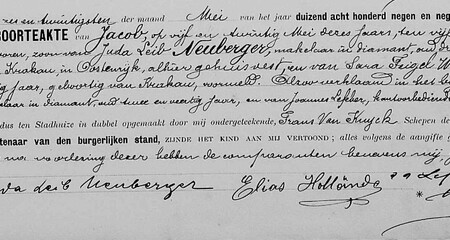 en twintigsten der maand Mei van het jaar duizend acht honderd negen en neg
BOORTEAKTE van Jacob, op vijf en twintig Mei dezes jaars, ten vijf
voren, zoon van Juda Leib Neuberger, makelaar in diamant, oud
Krakau, in Oostenrijk, alhier gehuisvest, en van Sara Feigel
tig jaar, geboortig van Krakau, vermeld. Alzoo verklaard in het be
laar in diamant, oud twee en veertig jaar, en van Joannes Lekker, kantoorbediende
dus ten Stadhuize in dubbel opgemaakt door mij ondergeteekende, Frans Van Kuyck Schepen de
tenaar van den burgerlijken stand, ZIJNDE HET KIND AAN MIJ VERTOOND; alles volgens de aangifte
na voorlezing dezer hebben de comparanten benevens mij,
da Leib Neuberger Elias Holländer